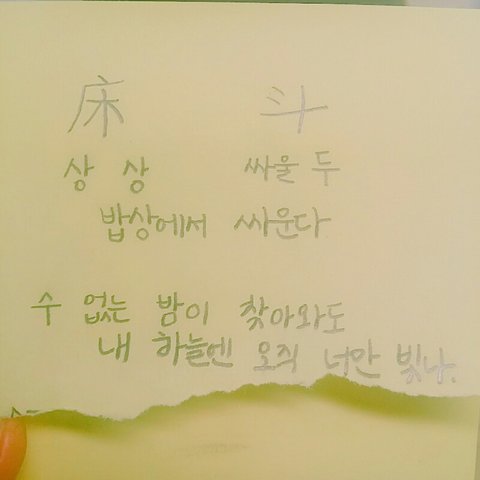 床 斗
상 상 싸울 두
밥상에서 싸운다
수 없는 밤이 찾아와도
내 하늘엔 오직 너만 빛나.